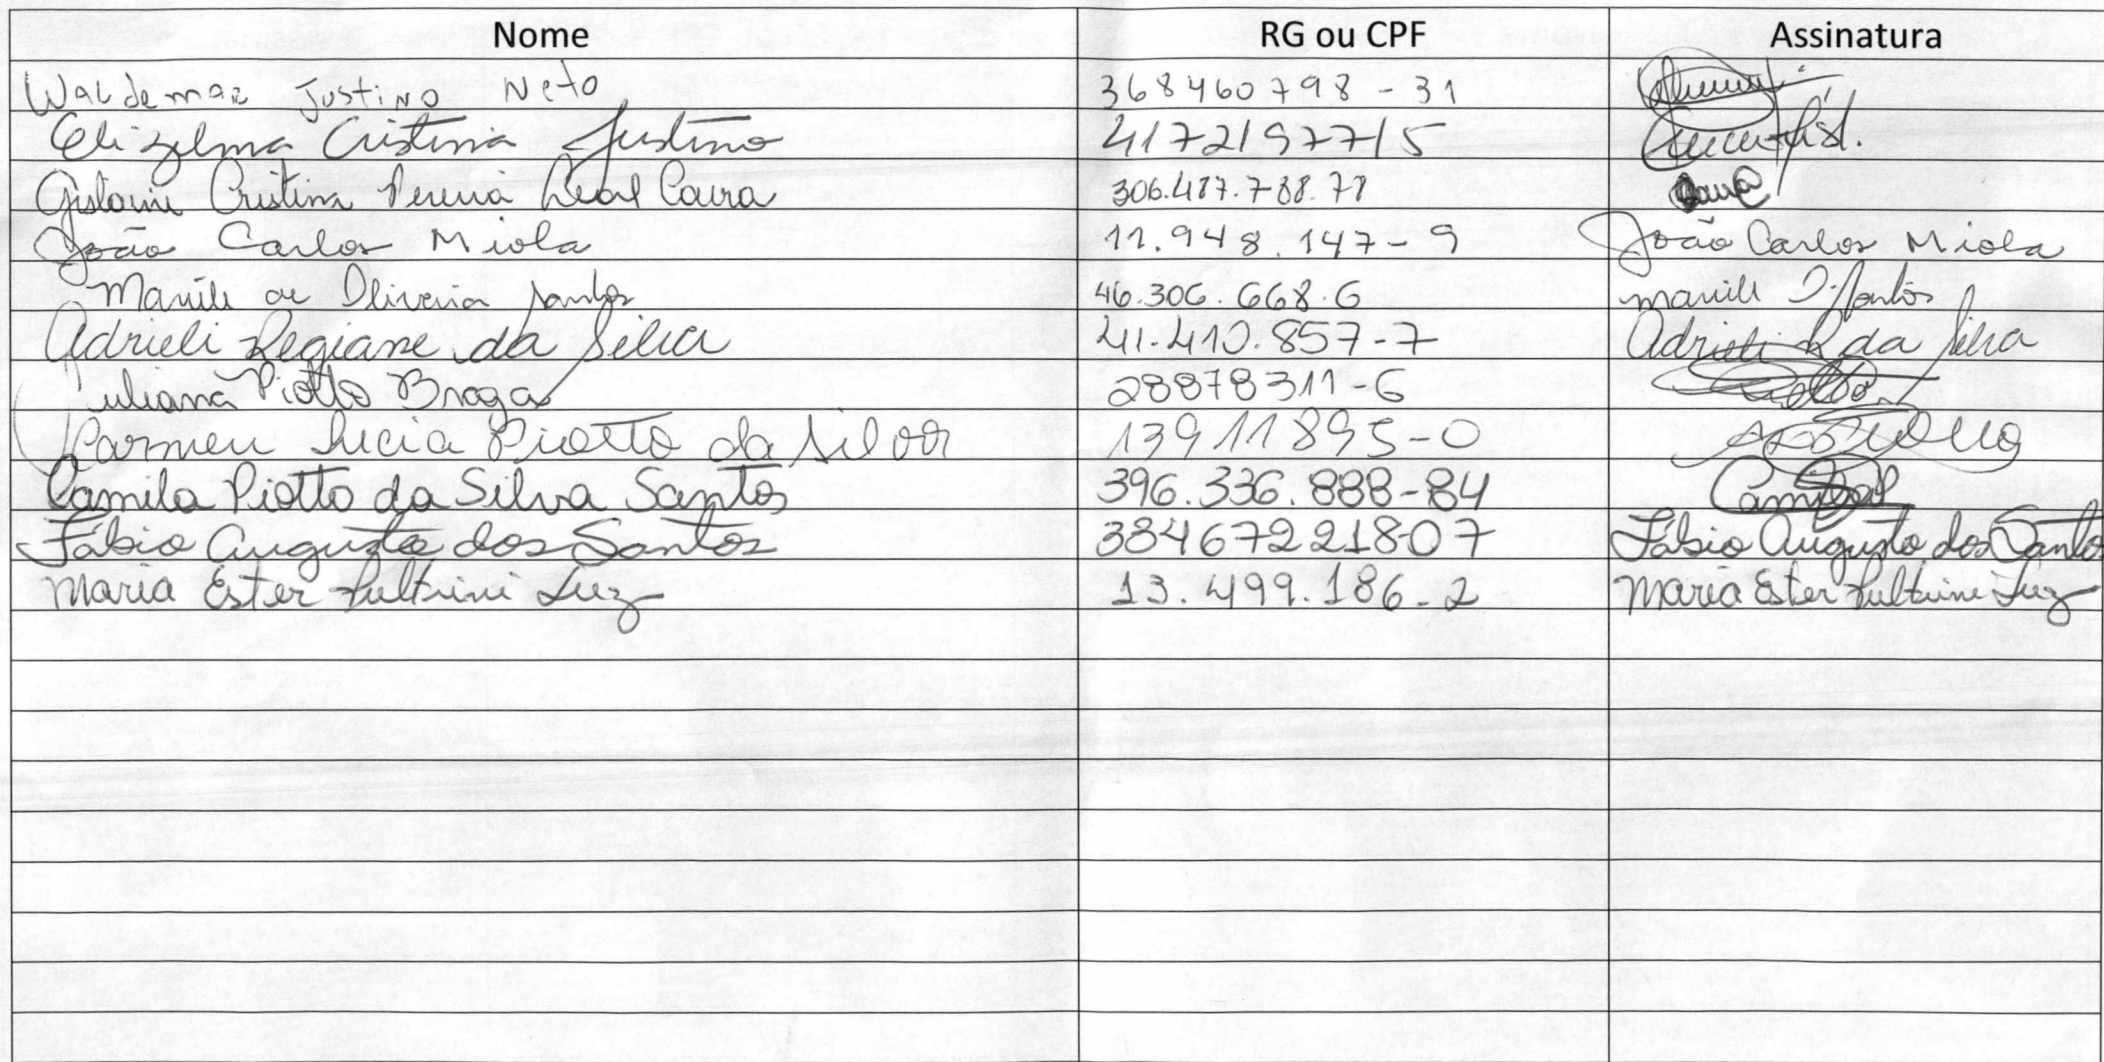 Nome RG ou CPF Assinatura
Waldemar Justino Neto 368460798-31
Elizelma Cristina Justino 41721977/5
Gislaini Cristina Pereira Leal Caira 306.487.788.78
João Carlos Miola 11.948.147-9 João Carlos Miola
de Oliveira Santos 46.306.668.6 Santos
Adrieli Regiane da Silva 41.410.857-7 Adrieli R da Silva
Juliana Piotto Braga 28878311-6
Carmen Lucia Piotto da Silva 13911895-0
Camila Piotto da Silva Santos 396.336.888-84
Fábio Augusto dos Santos 38467221807 Fábio Augusto dos Santos
Maria Ester Pultrini Luz 13.499.186-2 Maria Ester Pultrini Luz